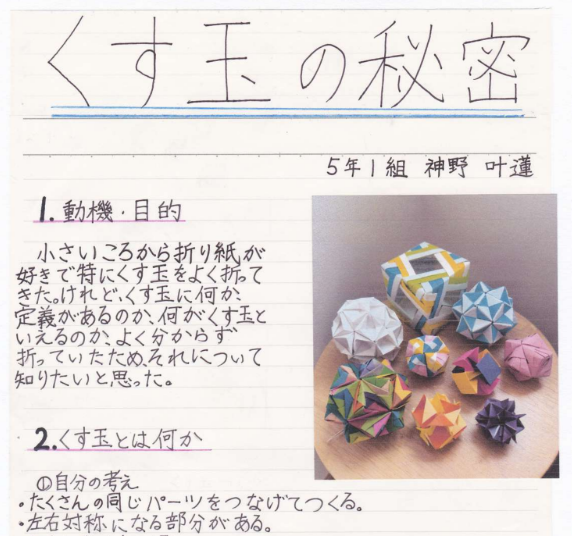 くす玉の秘密
5年1組 神野 叶蓮
1.動機・目的
小さいころから折り紙が
好きで特にくす玉をよく折って
きた。けれど、くす玉に何か、
定義があるのか、何がくす玉と
いえるのか、よく分からず
折っていたため、それについて
知りたいと思った。
2.くす玉とは何か
①自分の考え
・たくさんの同じパーツをつなげてつくる。
・左右対称になる部分がある。